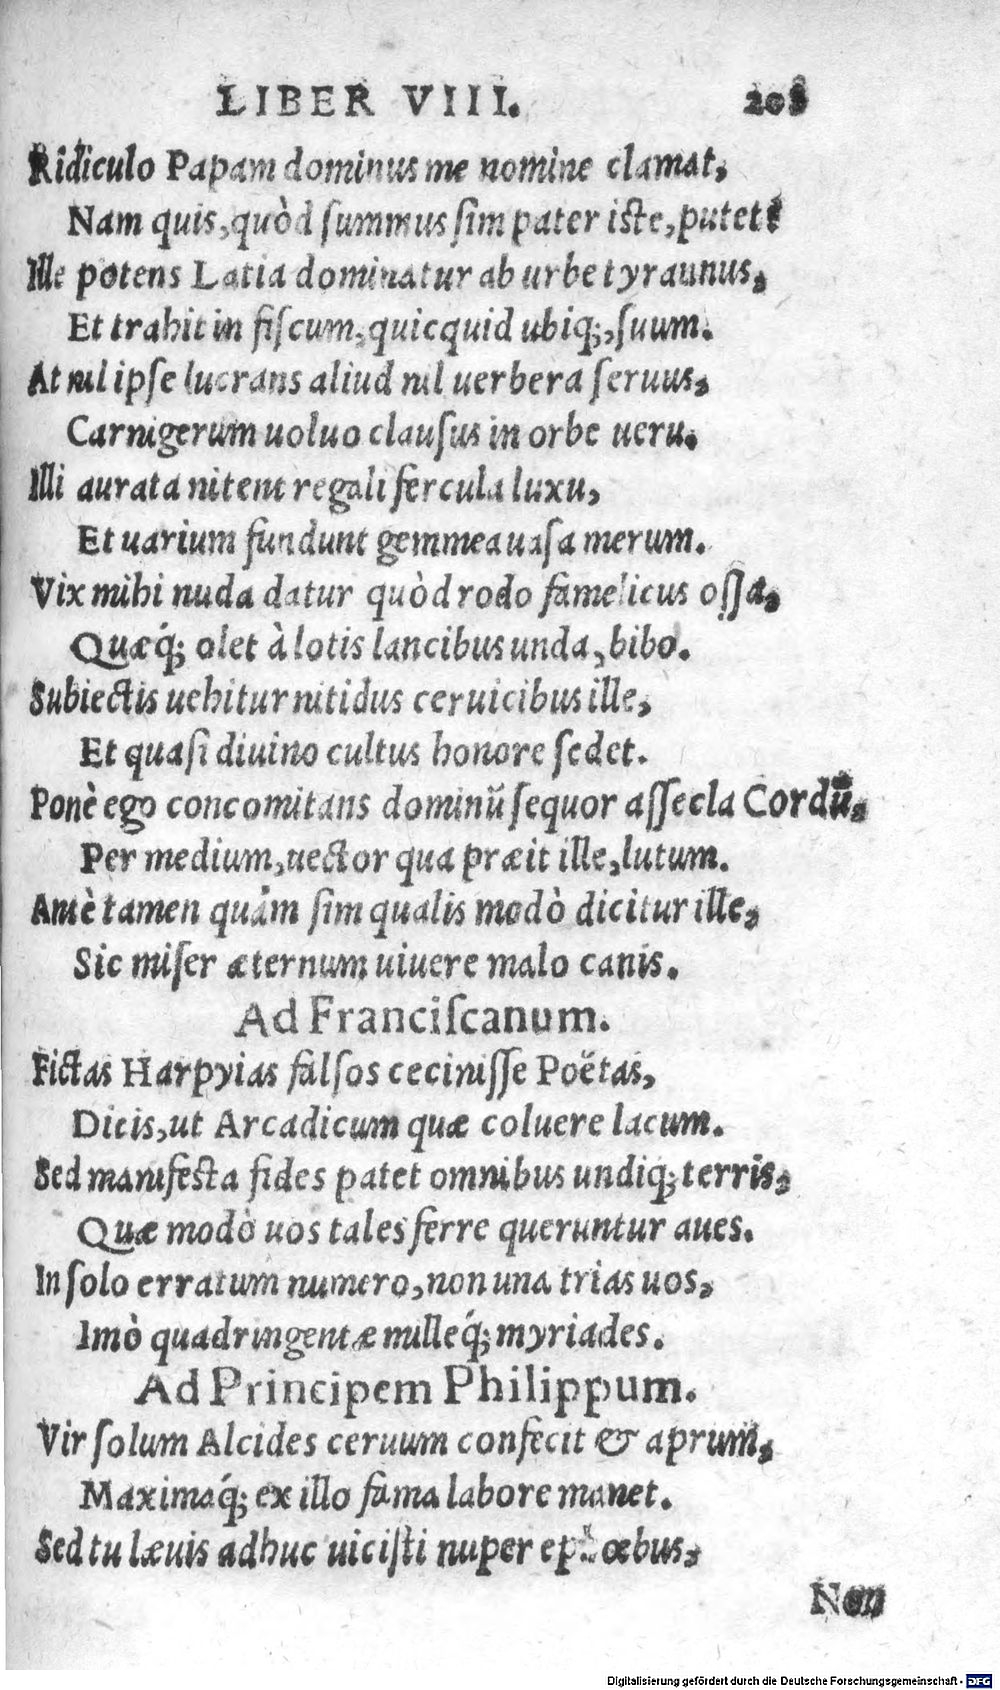 LIBER VIII. 208
Ridiculo Papam dominus me nomine clamat,
Nam quis, quòd ſummus ſim pater iste, putet?
Ille potens Latia dominatur ab urbe tyrannus,
Et trahit in fiſcum, quicquid ubiq;, ſuum.
At nil ipſe lucrans aliud nil uerbera ſeruus,
Carnigerum uoluo clauſus in orbe ueru.
Illi aurata nitent regali fercula luxu,
Et uarium fundunt gemmea uaſa merum.
Vix mihi nuda datur quòd rodo famelicus oſſa,
Quæq́; olet à lotis lancibus unda, bibo.
Subiectis uehitur nitidus ceruicibus ille,
Et quaſi diuino cultus honore ſedet.
Ponè ego concomitans dominū ſequor aſſecla Cordū,
Per medium, uector qua præit ille, lutum.
Antè tamen quàm ſim qualis modò dicitur ille,
Sic miſer æternum uiuere malo canis.
Ad Franciſcanum.
Fictas Harpyias falſos ceciniſſe Poëtas,
Dicis, ut Arcadicum quæ coluere lacum.
Sed manifesta fides patet omnibus undiq; terris,
Quæ modò uos tales ferre queruntur aues.
In ſolo erratum numero, non una trias uos,
Imò quadringentæ milleq́; myriades.
Ad Principem Philippum.
Vir ſolum Alcides ceruum confecit & aprum,
Maximaq́; ex illo fama labore manet.
Sed tu læuis adhuc uiciſti nuper ephœbus,
Non
Digitalisierung gefördert durch die Deutsche Forschungsgemeinschaft - DFG